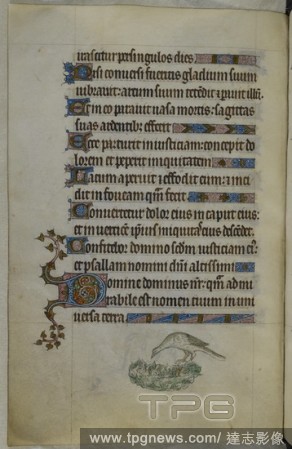 irascetur per singulos dies
Nisi conversi fueritis gladium suum
vibravit: arcum suum tetēdit ⁊ paravit illū
Et in eo paravit vasa mortis: sagittas
suas ardentibꝫ effecit
Ecce parturit iniusticiam: concepit do
lorem et peperit iniquitatem
Lacum aperuit ⁊ effodit eum: ⁊ inci
dit in foveam quā fecit
Convertetur dolor eius in caput eius:
et in verticē ipsius iniquitas eius descēdet
Confitebor domino scdm iusticiam ei⁹:
et psallam nomini dñi altissimi
Domine dominus nr̄: quā admi
rabile est nomen tuum in uni
versa terra
TPG
www.tpgnews.com / 達志影像